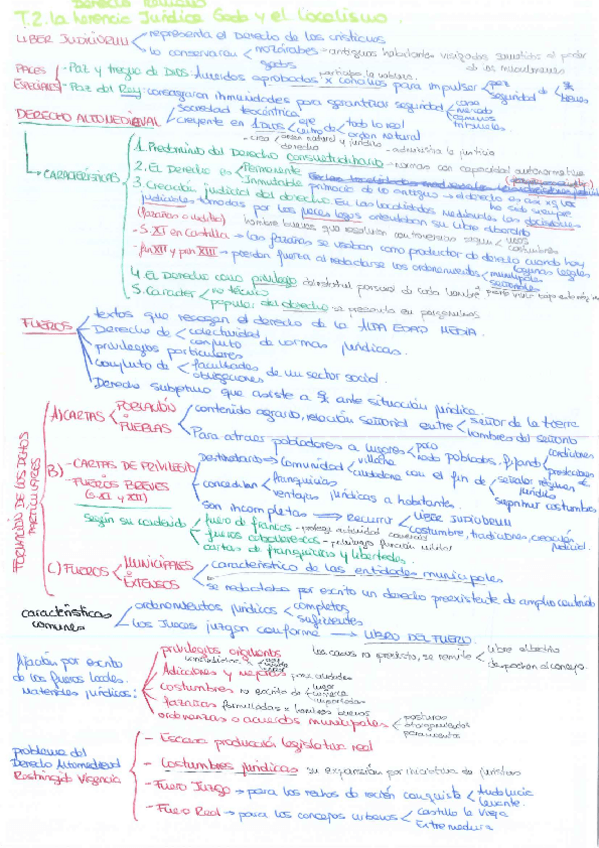 T.2. La herencia Jurídica Goda y el localismo.
LIBER JUDICIORUM representa el Derecho de los cristianos
lo conservaron mozárabes - antiguos habitantes visigodos sometidos al poder
godos de los musulmanes
PACES ESPECIALES - Paz y tregua de DIOS: Acuerdos aprobados x concilios para impulsar paz
seguridad de bienes
- Paz del Rey: consagraron inmunidades para garantizar seguridad casa
mercado
caminos
DERECHO ALTOMEDIEVAL Sociedad teocéntrica
creyente en 1 DIOS eje
centro de todo lo real
orden natural
- crea orden natural y jurídico
derecho - administra la justicia
CARACTERÍSTICAS
1. Predominio del Derecho consuetudinario - normas con capacidad autonormativa
2. El Derecho es Permanente
Inmutable primacía de lo antiguo → el derecho es así xq lo ha sido siempre
3. Creación judicial del derecho. En las localidades medievales las decisiones
judiciales tomadas por los jueces legos orientaban su libre albedrío
(fazañas o albedríos) hombres buenos que resolvían controversias según usos
costumbres
- S. XI en Castilla → las fazañas se usaban como productor de derecho cuando hay
lagunas legales
- fin XII y ppn XIII → pierden fuerza al redactarse los ordenamientos municipales
señoriales
4. El Derecho como privilegio
5. Carácter no técnico
popular: del derecho se presenta en pergaminos
FUEROS textos que recogen el derecho de la ALTA EDAD MEDIA.
Derecho de colectividad
conjunto de normas jurídicas.
privilegios particulares
conjunto de facultades de un sector social.
obligaciones
Derecho subjetivo que asiste a 1 ante situación jurídica.
FORMACIÓN DE LOS DCHOS PARTICULARES
A) CARTAS POBLACIÓN
o PUEBLAS
contenido agrario, relación señorial entre señor de la tierra
hombres del señorío
Para atraer pobladores a lugares poco
nada poblados, fijando condiciones
B) - CARTAS DE PRIVILEGIO
- FUEROS BREVES
(S. XI y XII)
Destinatarios → Comunidad villana
ciudadana con el fin de señalar régimen jurídico
suprimir costumbres
concedían franquicias
ventajas jurídicas a habitantes.
son incompletas → Recurrir LIBER JUDICIORUM
costumbre, tradiciones, creación judicial
según su contenido fuero de francos - protege actividad comercial
fueros - privilegia función militar
cartas de franquicias y libertades.
C) FUEROS MUNICIPALES
o EXTENSOS
característico de las entidades municipales
se redactaba por escrito un derecho preexistente de amplio contenido
características comunes
ordenamientos jurídicos completos
suficientes
los Jueces juzgan conforme → LIBRO DEL FUERO.
Fijación por escrito
de los fueros locales.
Materiales jurídicos:
privilegios
los casos no previstos, se remite libre albedrío
Adiciones y mejoras
costumbres no escrito de lugar
comarca
fazañas formuladas x hombres buenos
ordenanzas o acuerdos municipales posturas
otorgamientos
problema del
Derecho Altomedieval
Restringida Vigencia
- Escasa producción legislativa real
- Costumbres jurídicas su expansión por iniciativa de juristas
- Fuero Juzgo → para los reinos de recién conquista Andalucía
Levante.
- Fuero Real → para los concejos urbanos Castilla la Vieja
Extremadura